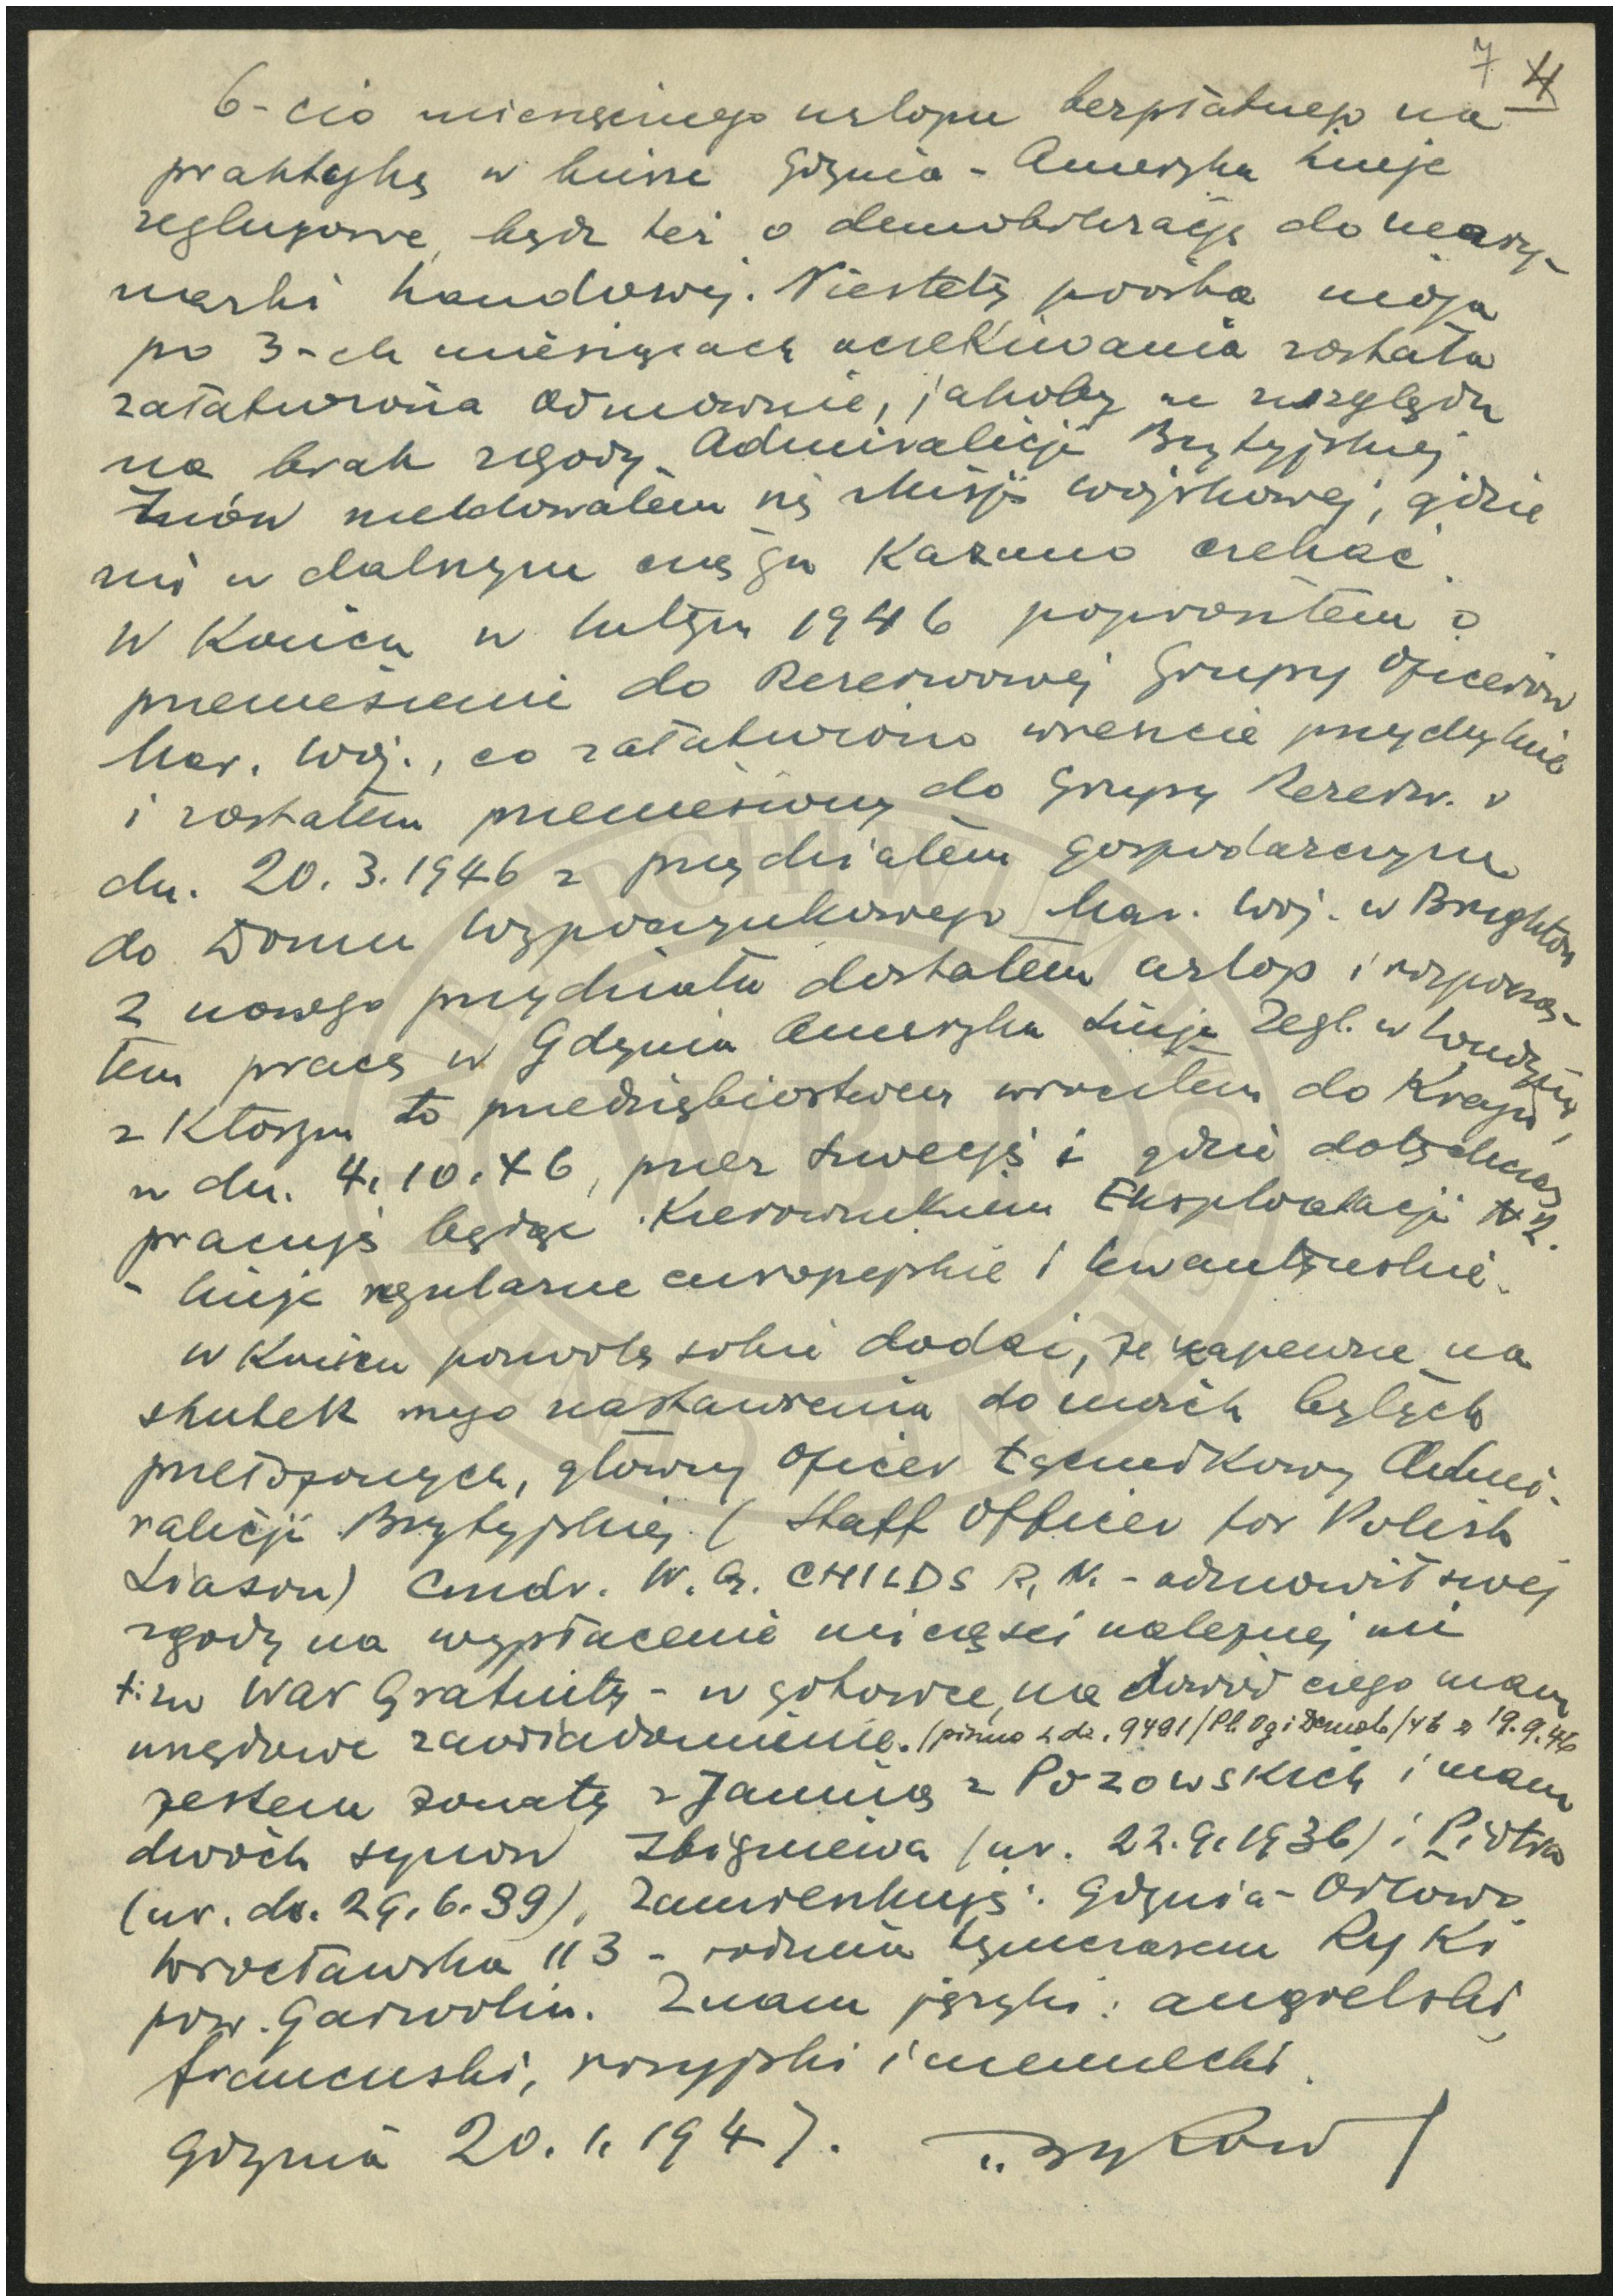 7 4
6-cio miesięcznego urlopu bezpłatnego na
praktykę w linie Gdynia - Ameryka Linje
żeglugowe, bądź też o demobilizację do mary-
narki handlowej. Niestety prośba moja
po 3-ch miesiącach oczekiwania została
załatwiona odmownie, jakoby ze względu
na brak zgody Admiralicji Brytyjskiej
Znów meldowałem się Misji Wojskowej, gdzie
mi w dalszym ciągu Kazano czekać.
W Końcu w lutym 1946 poprosiłem o
przeniesienie do Rezerwowej Grupy Oficerów
Mar. Woj., co załatwiono wreszcie przychylnie
i zostałem przeniesiony do Grupy Rezerw.
dn. 20.3.1946 z przydziałem gospodarczym
do Domu Wypoczynkowego Mar. Woj. w Brighton
Z nowego przydziału dostałem urlop i rozpoczą-
łem pracę w Gdynia Ameryka Linje Żegl. w Londynie,
z Którym to przedsiębiorstwem wróciłem do Kraju
w dn. 4.10.46, przez Szwecję i gdzie dotychczas
pracuję będąc Kierownikiem Eksploatacji N 2.
- linje regularne europejskie i lewantyńskie.
W Końcu pozwolę sobie dodać, że zapewne na
skutek mego nastawienia do moich byłych
przełożonych, główny Oficer łącznikowy Admi-
ralicji Brytyjskiej (Staff Officer for Polish
Liason) Cmdr. W. G. CHILDS R.N. - odmówił swej
zgody na wypłacenie mi części należnej mi
t.zw War Gratuity - w gotówce, na dowód czego mam
urzędowe zawiadomienie. /pismo L.dz. 9491/Pl. Og i Demob/46 z 19.9.46
Jestem żonaty z Janiną z Pozowskich i mam
dwóch synów Zbigniewa (ur. 22.9.1936) i Piotra
(ur. dn. 29.6.39), Zamieszkuję: Gdynia - Orłowo
Wrocławska 113 - rodzina tymczasem Ryki
pow. Garwolin. Znam języki: angielski,
francuski, rosyjski i niemiecki.
Gdynia 20.1.1947.